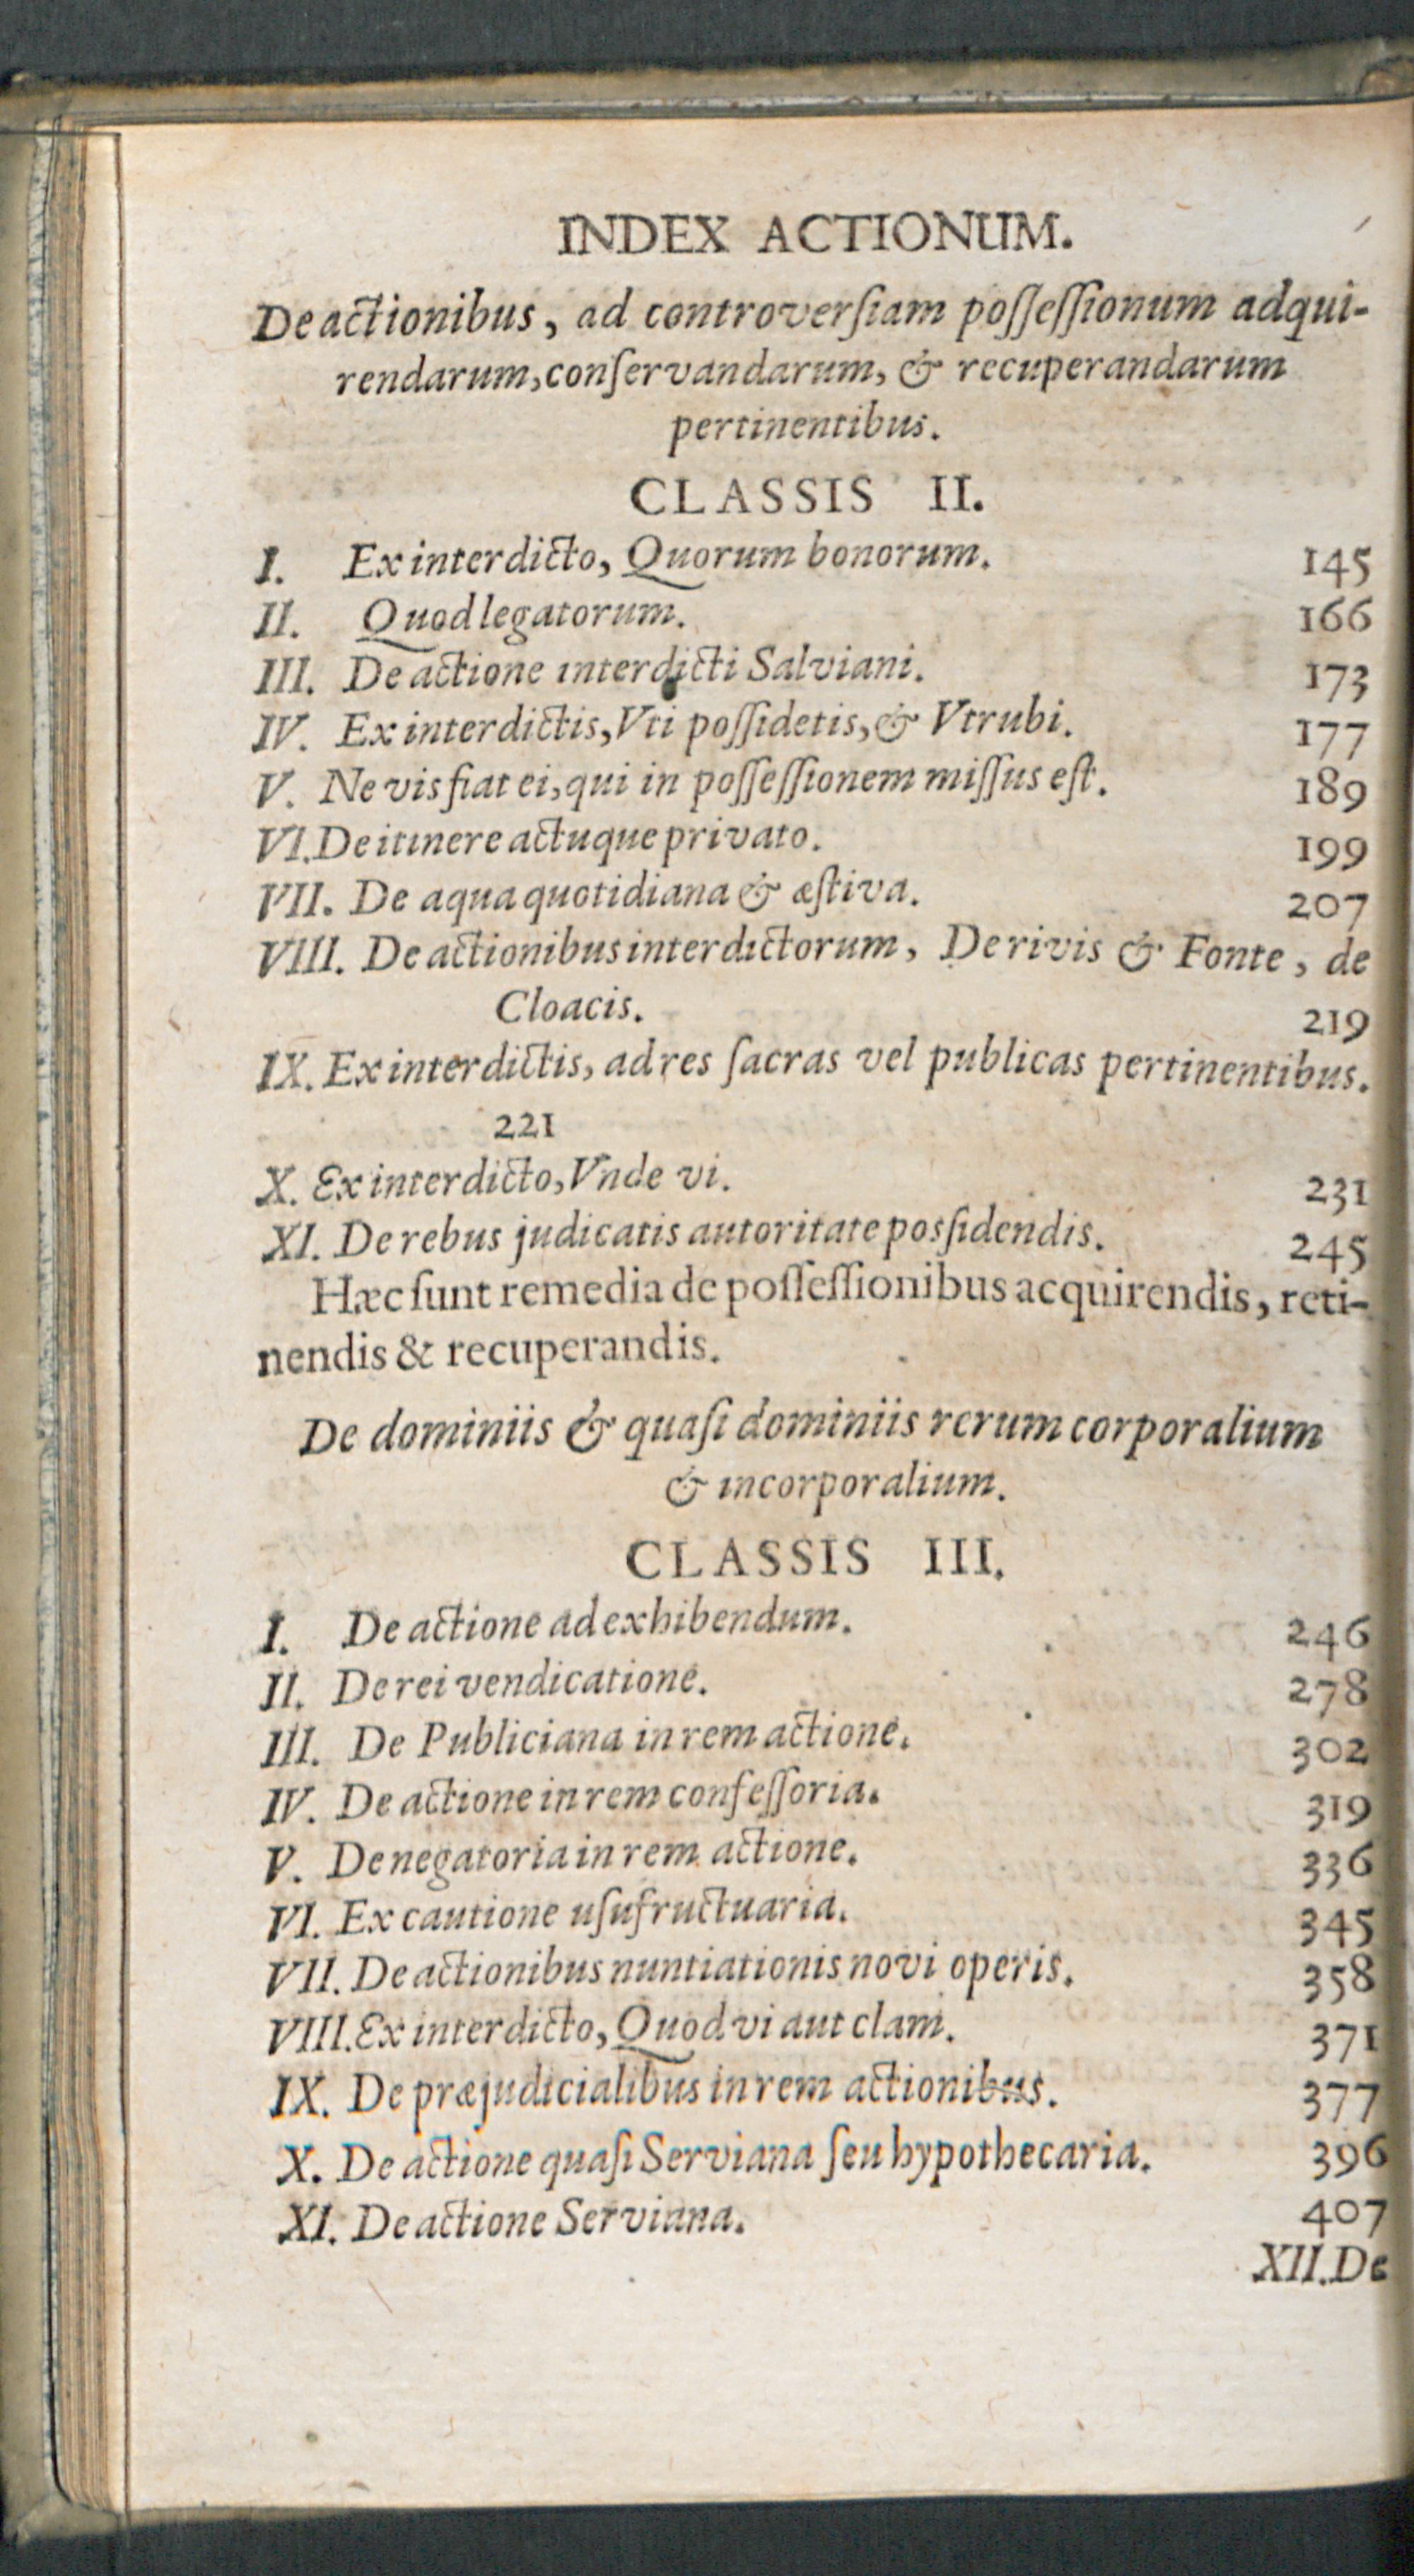 INDEX ACTIONUM.
De actionibus, ad controverſiam poſſeſſionum adqui-
rendarum, conſervandarum, & recuperandarum
pertinentibus.
CLASSIS II.
I. Ex interdicto, Quorum bonorum. 145
II. Quod legatorum. 166
III. De actione interdicti Salviani. 173
IV. Ex interdictis, Vti poſſidetis, & Vtrubi. 177
V. Ne vis fiat ei, qui in poſſeſſionem miſſus eſt. 189
VI. De itinere actuque privato. 199
VII. De aqua quotidiana & æſtiva. 207
VIII. De actionibus interdictorum, De rivis & Fonte, de
Cloacis. 219
IX. Ex interdictis, ad res ſacras vel publicas pertinentibus.
221
X. Ex interdicto, Vnde vi. 231
XI. De rebus judicatis autoritate posſidendis. 245
Hæc ſunt remedia de poſſeſſionibus acquirendis, reti-
nendis & recuperandis.
De dominiis & quaſi dominiis rerum corporalium
& incorporalium.
CLASSIS III.
I. De actione ad exhibendum. 246
II. De rei vendicatione. 278
III. De Publiciana in rem actione. 302
IV. De actione in rem confeſſoria. 319
V. De negatoria in rem actione. 336
VI. Ex cautione uſufructuaria. 345
VII. De actionibus nuntiationis novi operis. 358
VIII. Ex interdicto, Quod vi aut clam. 371
IX. De præjudicialibus in rem actionibus. 377
X. De actione quaſi Serviana ſeu hypothecaria. 396
XI. De actione Serviana. 407
XII. De